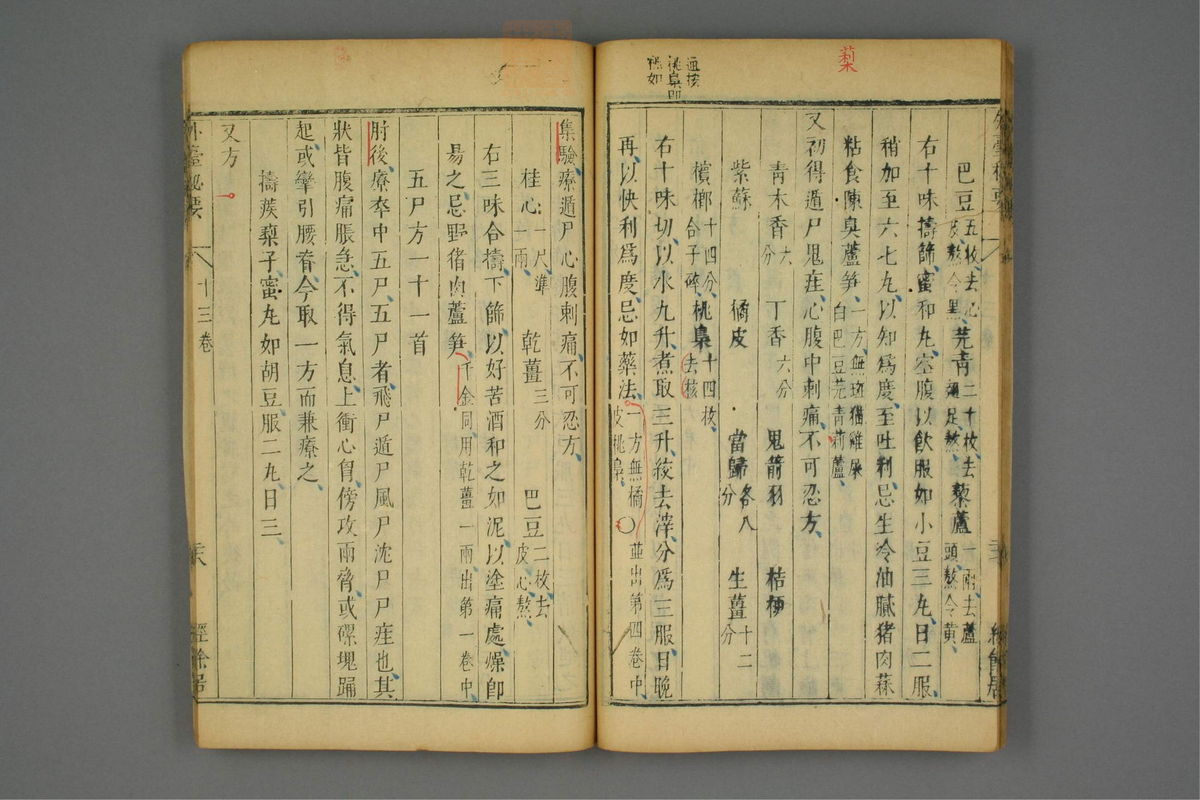 蔾
巴豆五枚去心皮熬令黑芫青二十枚去翅足熬藜蘆一兩去蘆頭熬令黃
右十味擣篩蜜和丸空腹以飲服如小豆三丸日二服
稍加至六七丸以知爲度至吐利忌生冷油膩猪肉蒜
粘食陳臭蘆笋一方無斑猫雞屎白巴豆芫青莉蘆
又初得遁尸鬼疰心腹中刺痛不可忍方
青木香六分 丁香六分 鬼箭羽 桔梗
紫蘇 橘皮 當歸各八分 生薑十二分
檳榔十四分合子碎桃梟十四枚去核
右十味切以水九升煮取三升絞去滓分爲三服日晚
再以快利爲度忌如藥法一方無橘皮桃梟〇並出第四卷中
集驗療遁尸心腹刺痛不可忍方
桂心一尺準一兩 乾薑三分 巴豆二枚去皮心熬
右三味合擣下篩以好苦酒和之如泥以塗痛處燥即
易之忌野猪肉蘆笋千金同用乾薑一兩出第一卷中
五尸方一十一首
肘後療卒中五尸五尸者飛尸遁尸風尸沈尸尸疰也其
狀皆腹痛脹急不得氣息上衝心胷傍攻兩脅或磥塊踊
起或攣引腰脊今取一方而兼療之
擣蒺䔧子蜜丸如胡豆服二丸日三
又方
外臺祕要 十三卷 經餘居